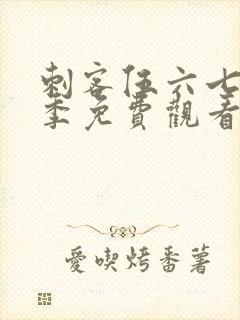 刺客伍六七
季免費觀看
愛喫烤番薯